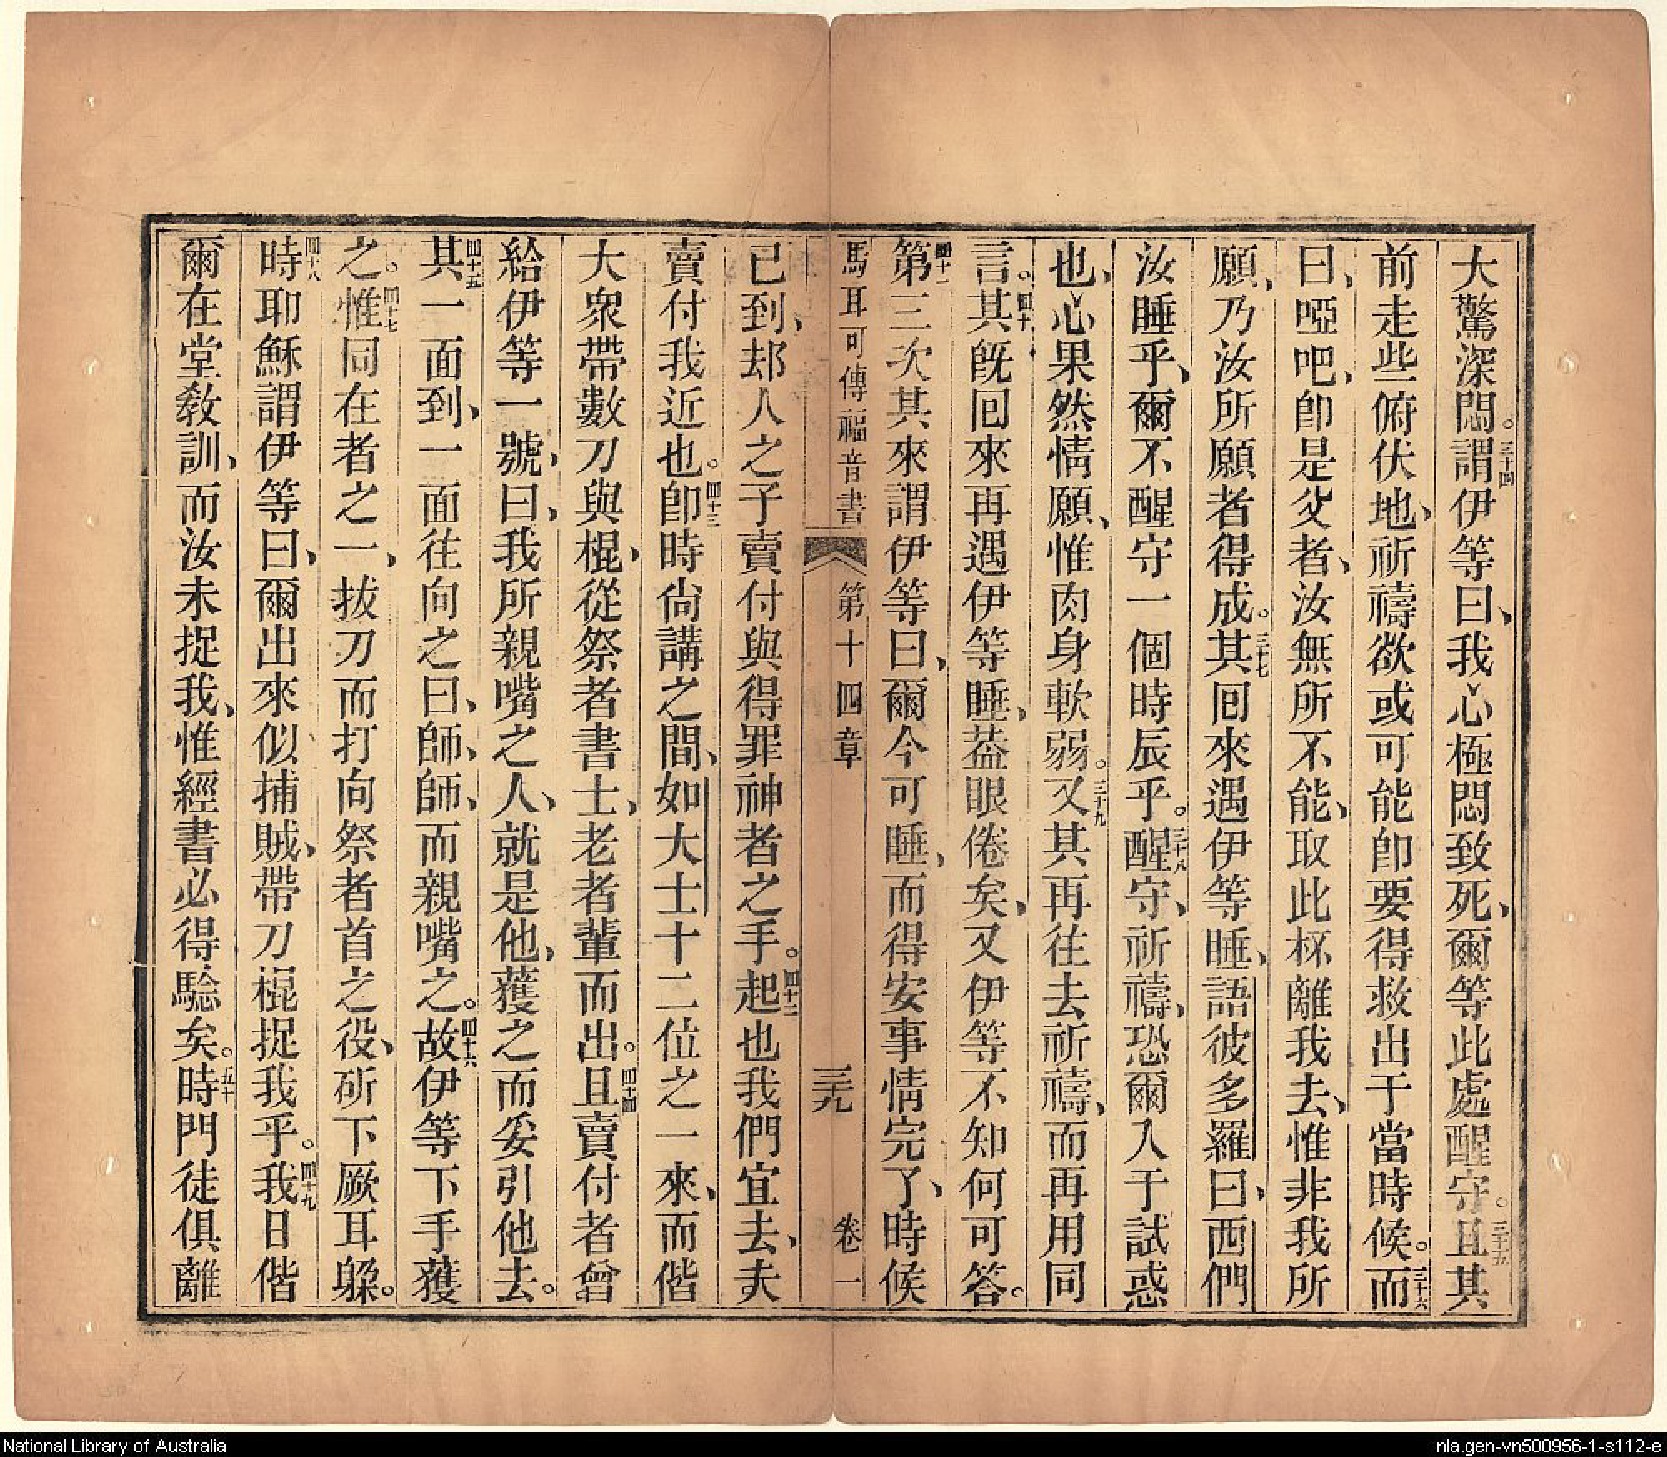 大驚深悶。三十四謂伊等曰、我心極悶致死、爾等此處醒守。三十五且其
前走些俯伏地、祈禱欲或可能卽要得救出于當時候。三十六而
曰、啞吧、卽是父者、汝無所不能、取此杯離我去、惟非我所
願、乃汝所願者得成。三十七其囘來遇伊等睡、語彼多羅曰、西們
汝睡乎、爾不醒守一個時辰乎。三十八醒守、祈禱、恐爾入于試惑
也、心果然情願、惟肉身軟弱。三十九又其再往去祈禱、而再用同
言。四十其旣囘來再遇伊等睡、葢眼倦矣、又伊等不知何可答。
四十一第三次其來謂伊等曰、爾今可睡、而得安事情完了、時候
馬耳可傳福音書 第十四章 三十九 卷一
已到、却人之子賣付與得罪神者之手。四十二起也我們宜去、夫
賣付我近也。四十三卽時尙講之間、如大士十二位之一來、而偕
大衆帶數刀與棍、從祭者書士、老者輩而出。四十四且賣付者曾
給伊等一號、曰、我所親嘴之人、就是他、獲之而妥引他去。
四十五其一面到、一面往向之曰、師、師、而親嘴之。四十六故伊等下手獲
之。四十七惟同在者之一、拔刀而打向祭者首之役、斫下厥耳躲。
四十八時耶穌謂伊等曰、爾出來似捕賊、帶刀棍捉我乎。四十九我日偕
爾在堂敎訓、而汝未捉我、惟經書必得騐矣。五十時門徒俱離
National Library of Australia
nla.gen-vn500956-1-s112-e